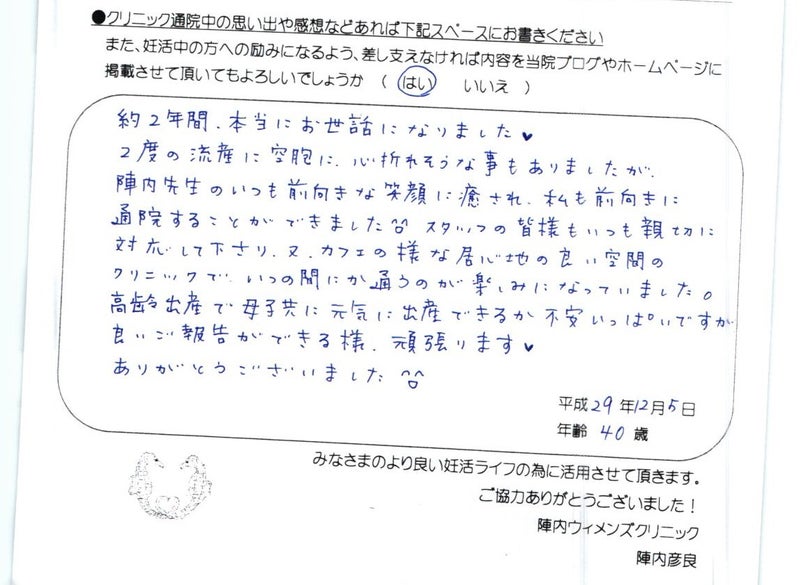 ●クリニック通院中の思い出や感想などあれば下記スペースにお書きください
また、妊活中の方への励みになるよう、差し支えなければ内容を当院ブログやホームページに
掲載させて頂いてもよろしいでしょうか （ はい いいえ ）
約2年間、本当にお世話になりました♥
2度の流産に空胞に、心折れそうな事もありましたが、
陣内先生のいつも前向きな笑顔に癒され、私も前向きに
通院することができました^^ スタッフの皆様もいつも親切に
対応して下さり、又、カフェの様な居心地の良い空間の
クリニックで、いつの間にか通うのが楽しみになっていました。
高齢出産で母子共に元気に出産できるか不安いっぱいですが
良いご報告ができる様、頑張ります♥
ありがとうございました^^
平成29年12月5日
年齢 40 歳
みなさまのより良い妊活ライフの為に活用させて頂きます。
ご協力ありがとうございました！
陣内ウィメンズクリニック
陣内彦良